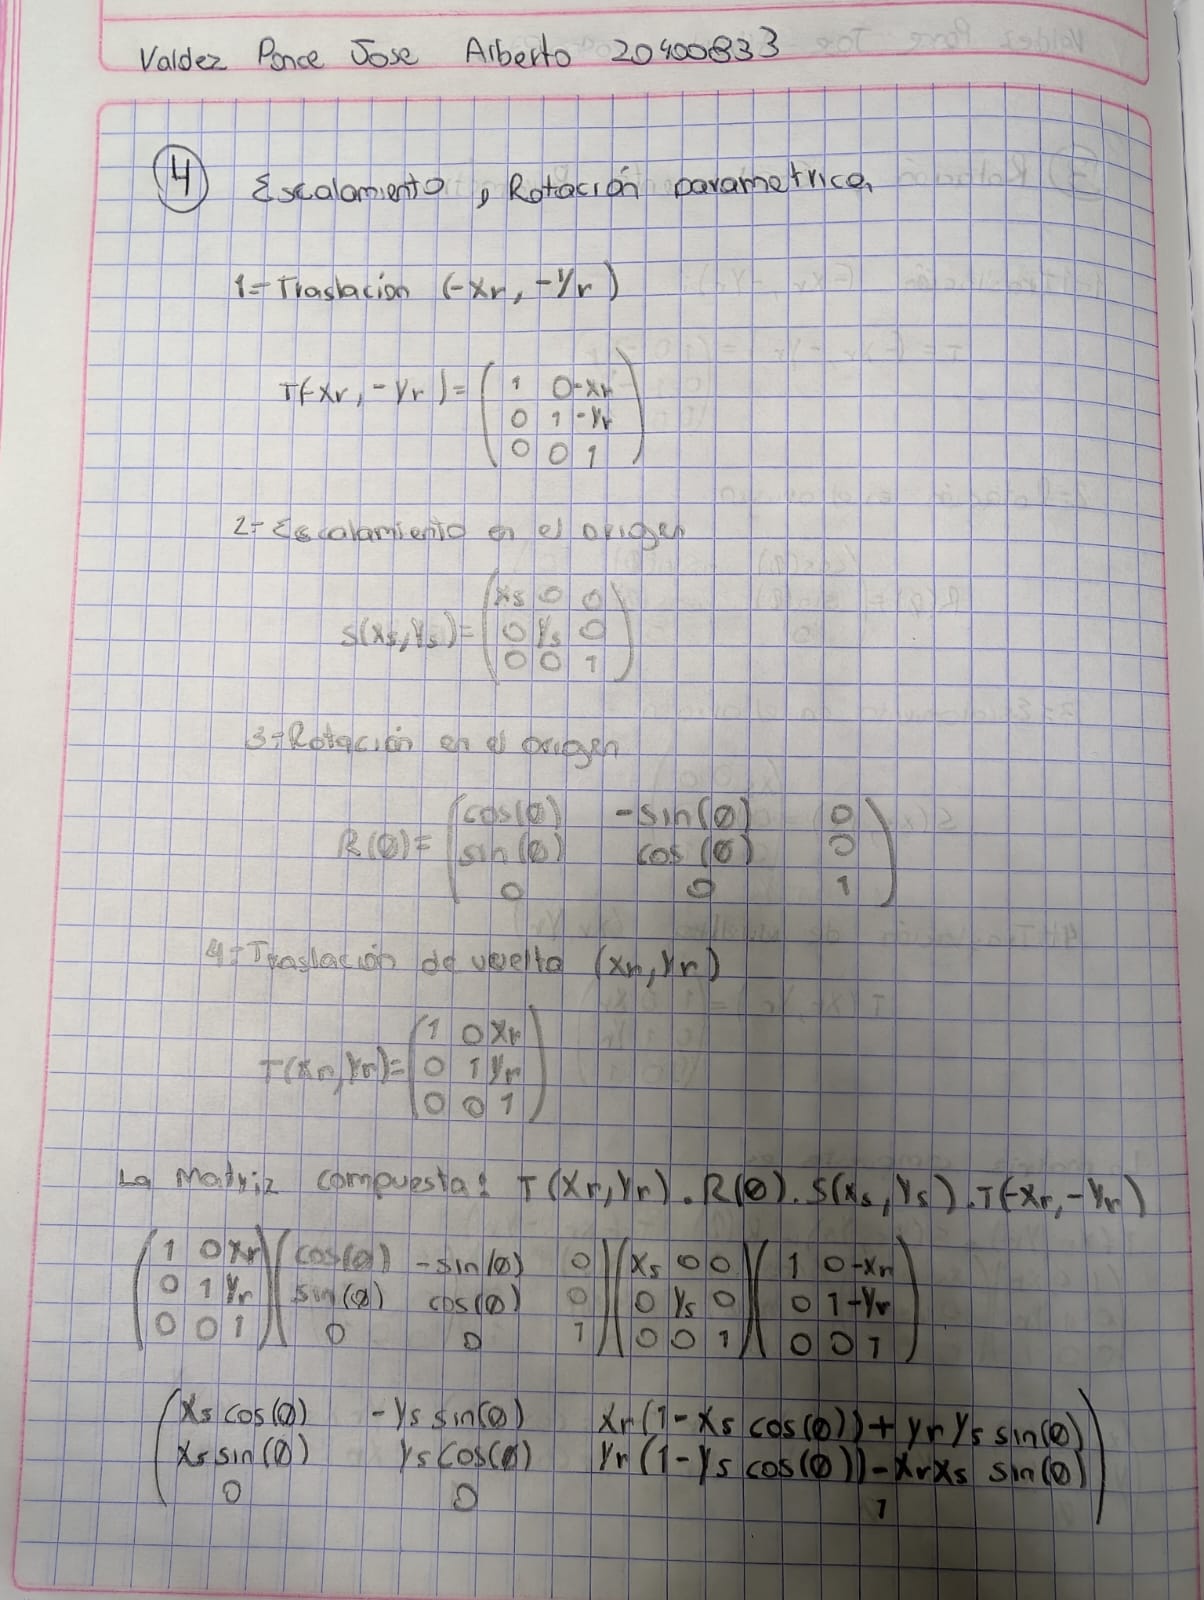 Valdez Ponce Jose Alberto 20400833
4 Escalamiento, Rotación parametrica,
1=Traslacion (-Xr, -Yr)
T(-Xr, -Yr)= (1 0 -Xr
0 1 -Yr
0 0 1)
2= Escalamiento en el origen
S(Xs,Ys)= (Xs 0 0
0 Ys 0
0 0 1)
3=Rotación en el origen
R(Ø)= (cos(Ø) -sin(Ø) 0
sin(Ø) cos(Ø) 0
0 0 1)
4=Traslación de vuelta (Xr,Yr)
T(Xr,Yr)= (1 0 Xr
0 1 Yr
0 0 1)
La Matriz compuesta: T(Xr,Yr).R(Ø).S(Xs,Ys).T(-Xr,-Yr)
(1 0 Xr)(cos(Ø) -sin(Ø) 0)(Xs 0 0)(1 0 -Xr)
0 1 Yr sin(Ø) cos(Ø) 0 0 Ys 0 0 1 -Yr
0 0 1 0 0 1 0 0 1 0 0 1
(Xs cos(Ø) -Ys sin(Ø) Xr(1-Xs cos(Ø))+YrYs sin(Ø)
Xs sin(Ø) Ys cos(Ø) Yr(1-Ys cos(Ø))-XrXs sin(Ø)
0 0 1)